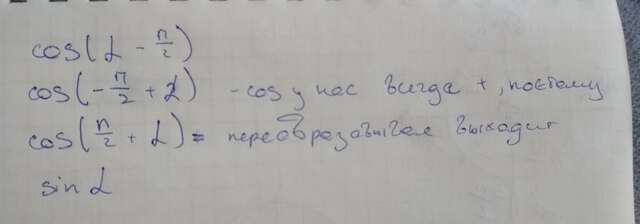 cos(α - π/2)
cos(-π/2 + α) - cos у нас всегда +, поэтому
cos(π/2 + α) = переобразовываем выходит
sin α